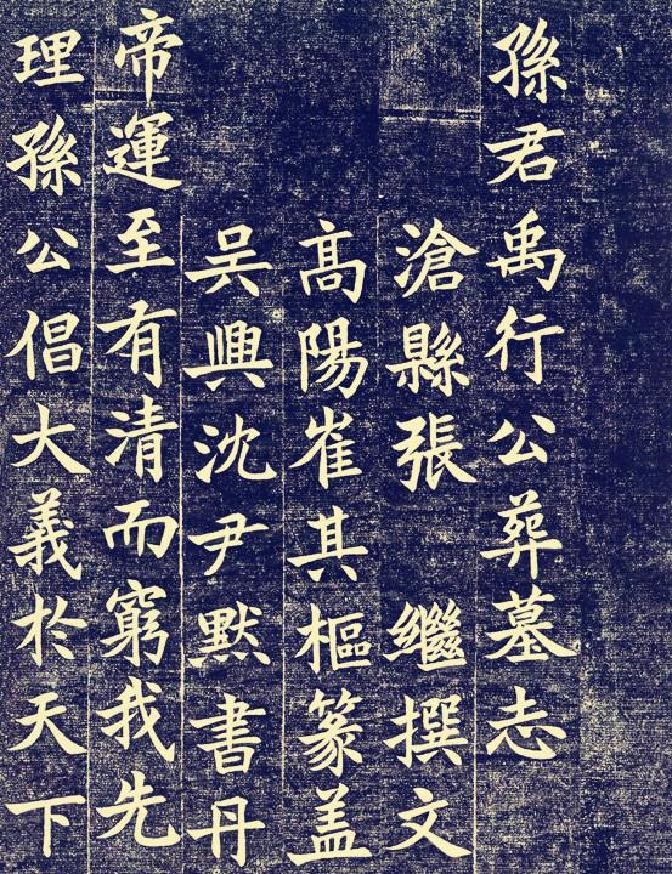 孫君禹行公葬墓志
滄縣張繼撰文
高陽崔其樞篆盖
吳興沈尹默書丹
帝運至有清而窮我先
理孫公倡大義於天下